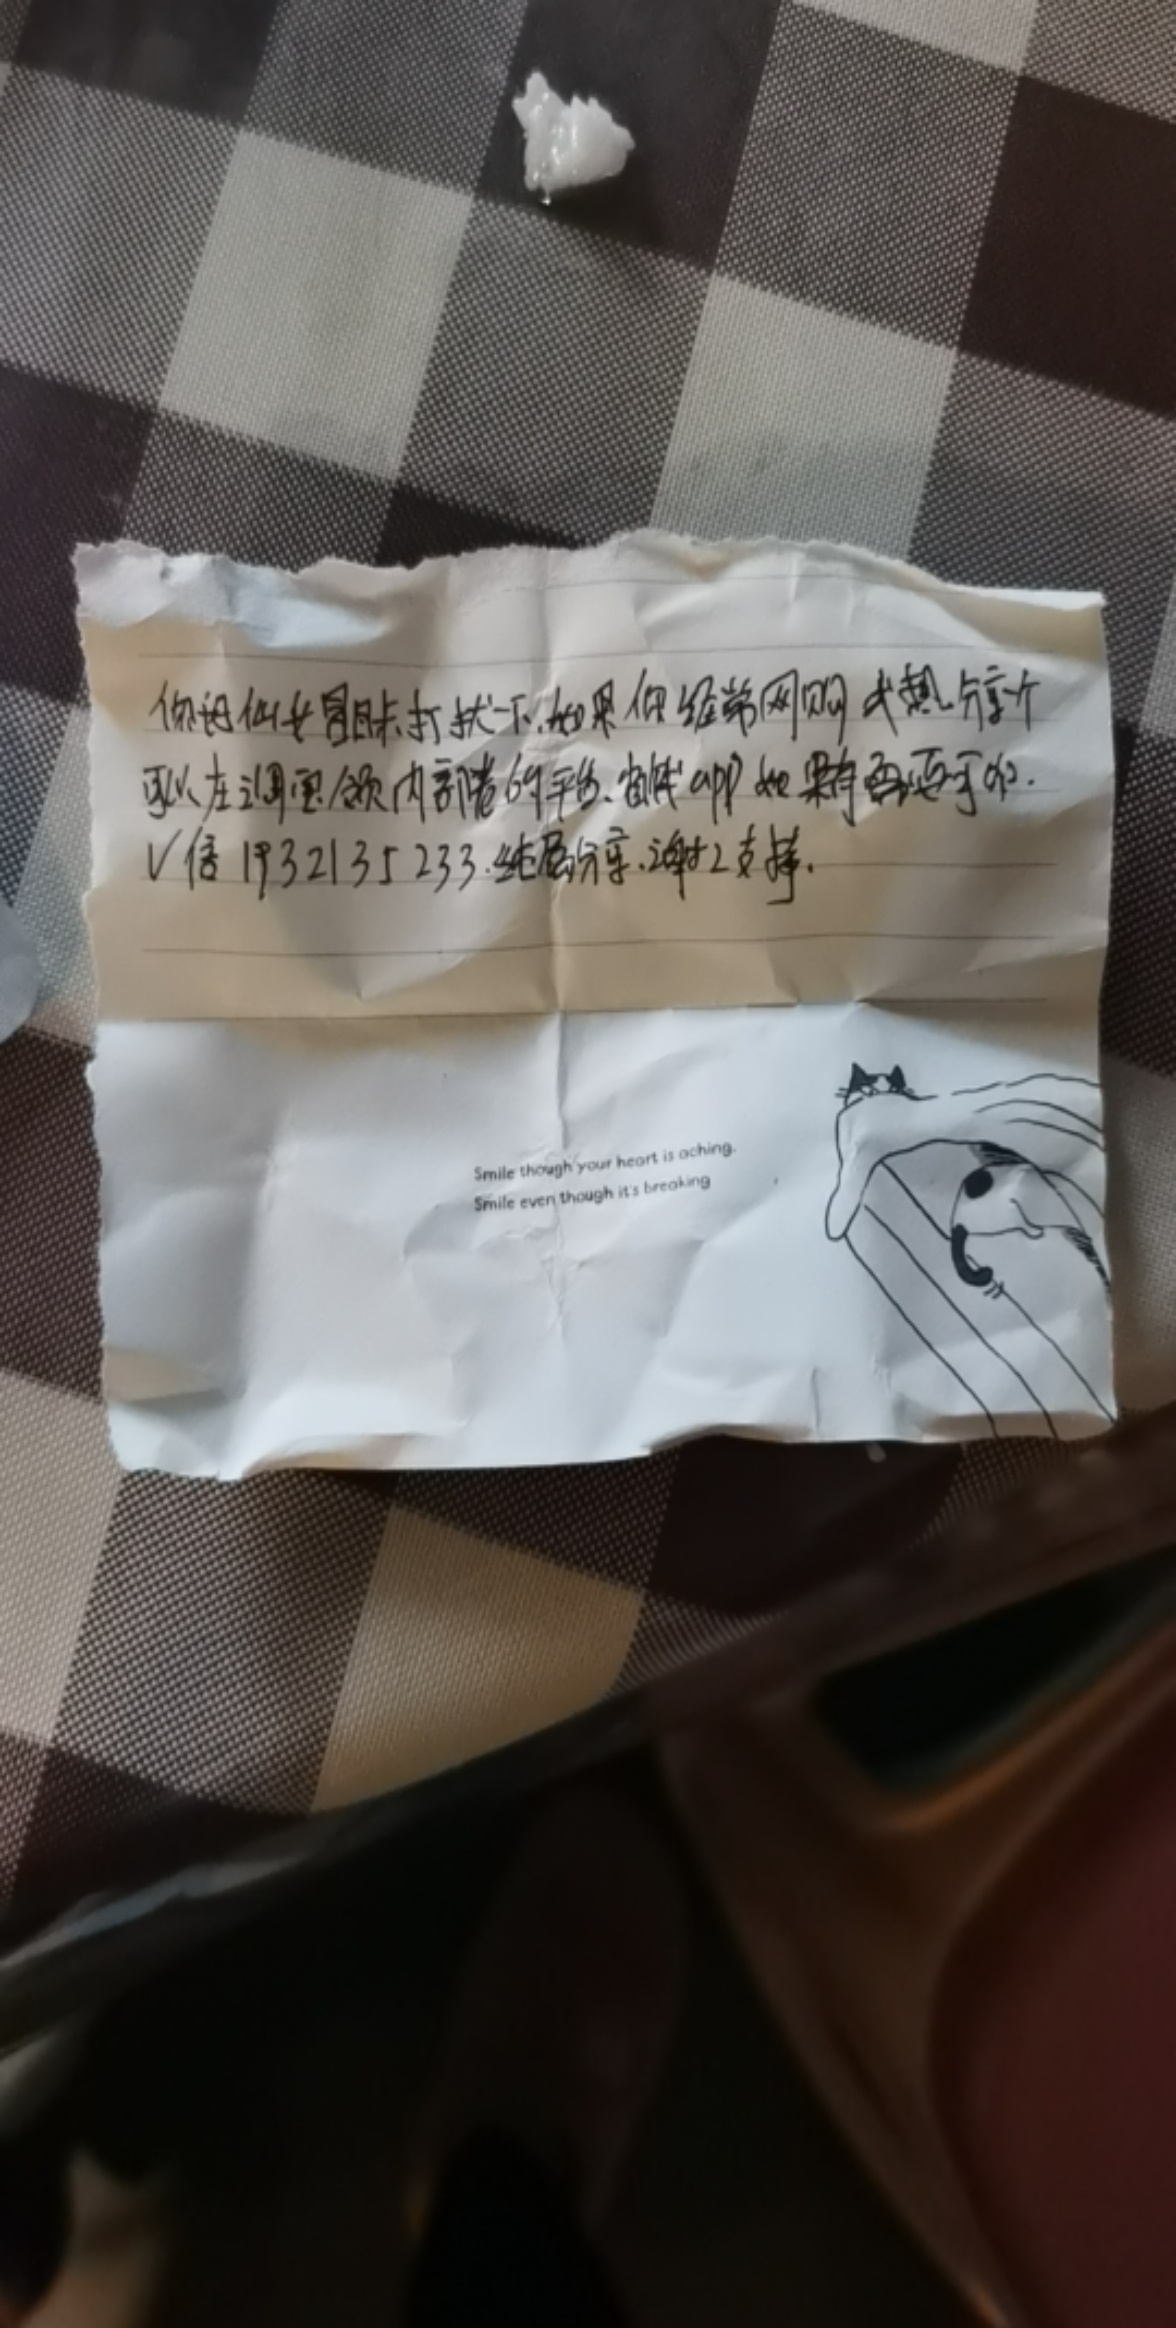 你好仙女冒昧打扰一下.如果你经常网购 我想分享个
可以在淘宝领内部卷的平台.省钱app 如果有需要可加.
V信 1932135233.纯属分享.谢谢支持.
Smile though your heart is aching.
Smile even though it's breaking